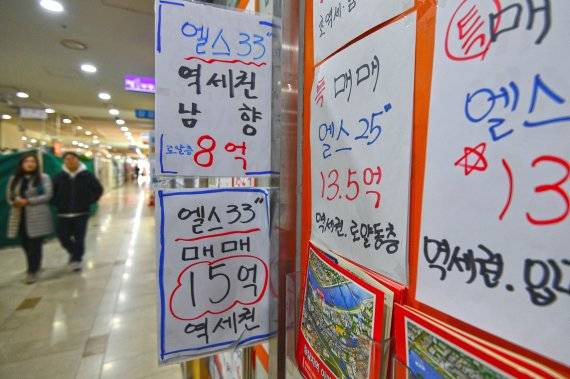 엘스 33"
역세친
남향
로얄층 8억
엘스 33"
매매
15억
역세친
초역세.남
특 매매
엘스 25"
13.5억
역세권.로얄동층
특 매
엘스
13
역세권.입